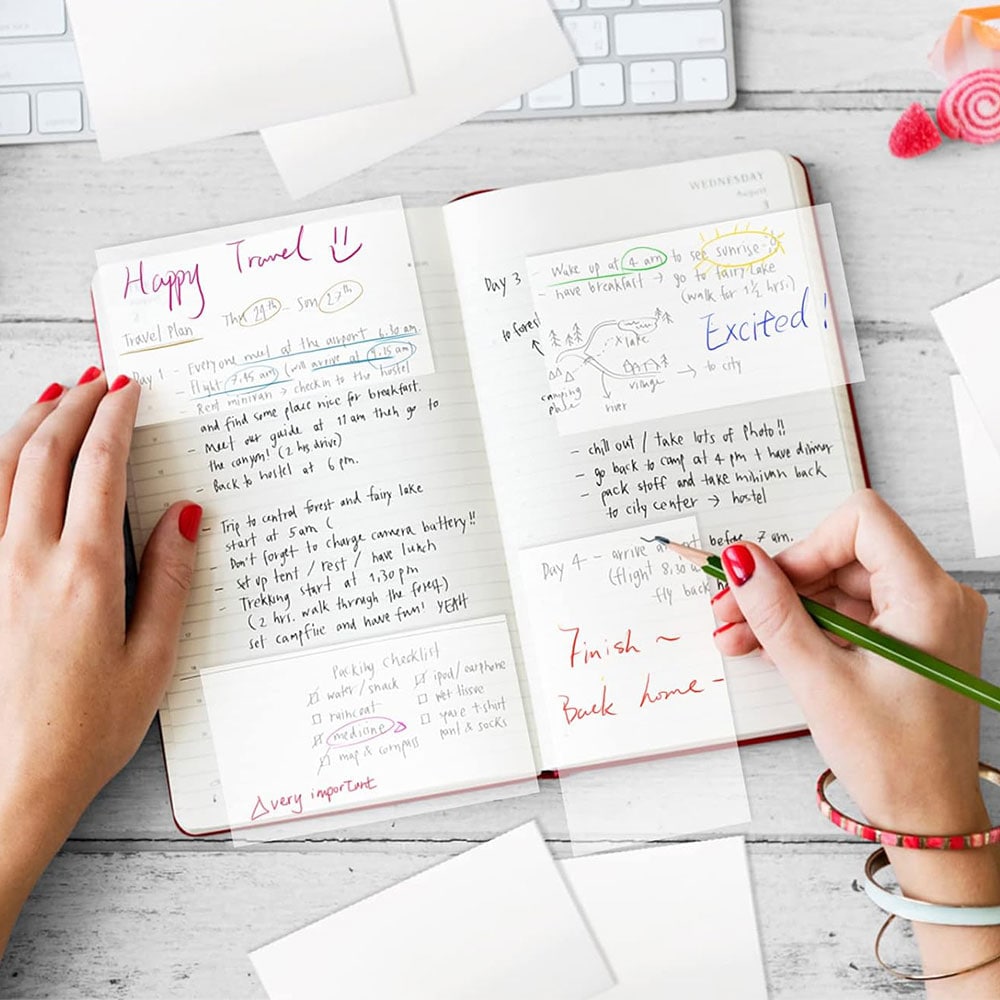 Happy Travel
Thu 24th - Sun 27th
Travel Plan
Day 1 - Everyone meet at the airport 6.30 am
- Flight 7.45 am (will arrive at 9.15 am)
- Rent minivan → check in to the hostel
and find some place nice for breakfast.
- Meet our guide at 11 am then go to
the canyon! (2 hrs drive)
- Back to hostel at 6 pm.
- Trip to central forest and fairy lake
start at 5am (
- Don't forget to charge camera battery!!
- Set up tent / rest / have lunch
- Trekking start at 1.30 pm
(2 hrs. walk through the forest)
- set campfire and have fun! YEAH
Packing checklist
water / snack
raincoat
medicine
map & compass
ipod / earphone
wet tissue
spare t-shirt
pant & socks
very important
WEDNESDAY
August
1
Day 3
- Wake up at 4 am to see sunrise
- have breakfast → go to fairy lake
(walk for 1 1/2 hrs.)
Excited!
to forest
lake
→ to city
village
camping
place
river
- chill out / take lots of photo!!
- go back to camp at 4 pm & have dinner
- pack stuff and take minivan back
to city center → hostel
Day 4 - arrive before 7 am.
(flight 8.30
fly back
Finish ~
Back home -